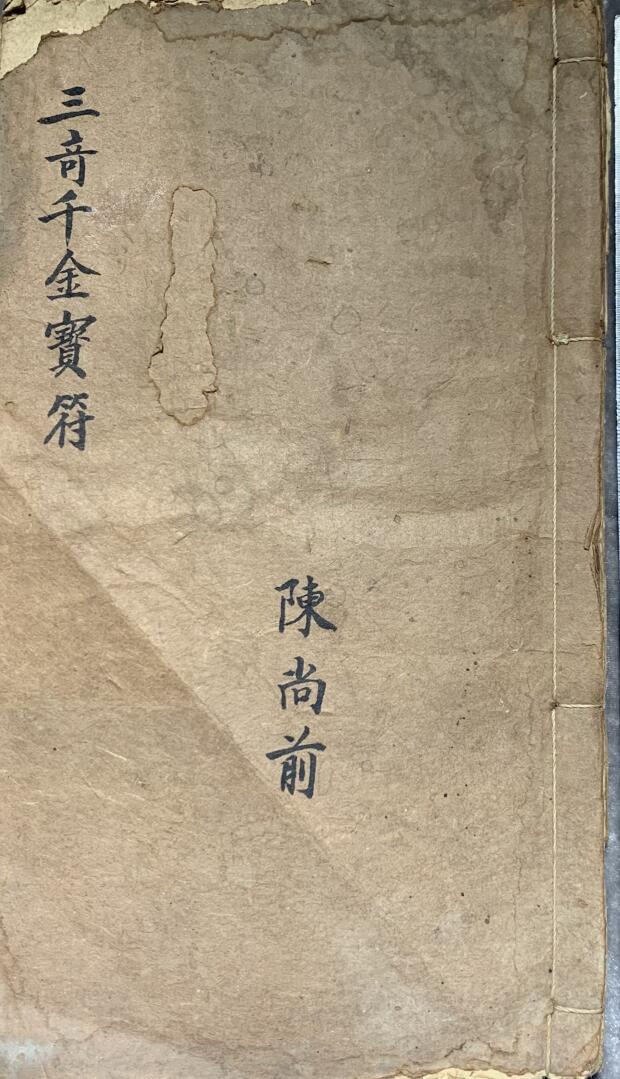 三奇千金寳符
陳尚前